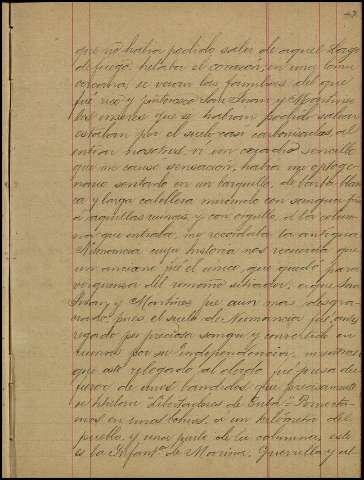 que no habia podido salir de aquel lago
de fuego helaba el corazon, en una loma
cercana, se veian las familias del que
fué rico y pintoresco San Juan y Martinez
los enseres que se habian podido salvar
estaban por el suelo casi carbonizados, al
entrar nosotros, vi un cuadro sencillo
que me causó sensacion, habia un octoge
nario sentado en un banquillo, de barba blan
ca y larga cabellera mirando con sangre fria
a aquellas ruinas, y con orgullo, a la colum
na que entraba, me recordaba la antigua
Numancia cuya historia nos recuerda que
un anciano fué el unico que quedó para
verguenza del romano sitiador, a que San
Juan y Martinez fue aun mas desgra
ciado pues el suelo de Numancia fué
regado por preciosa sangre y convertido en
ruinas por su independencia, mientras
que este y legado al olvido fué presa del
furor de unos bandidos que precisamente
se titulan "Libertadores de Cuba" = Pernocta
mos en unas lomas, a un kilometro del
pueblo, y una parte de la columna, esta
es la Infantª de Marina, Guerrilla y el